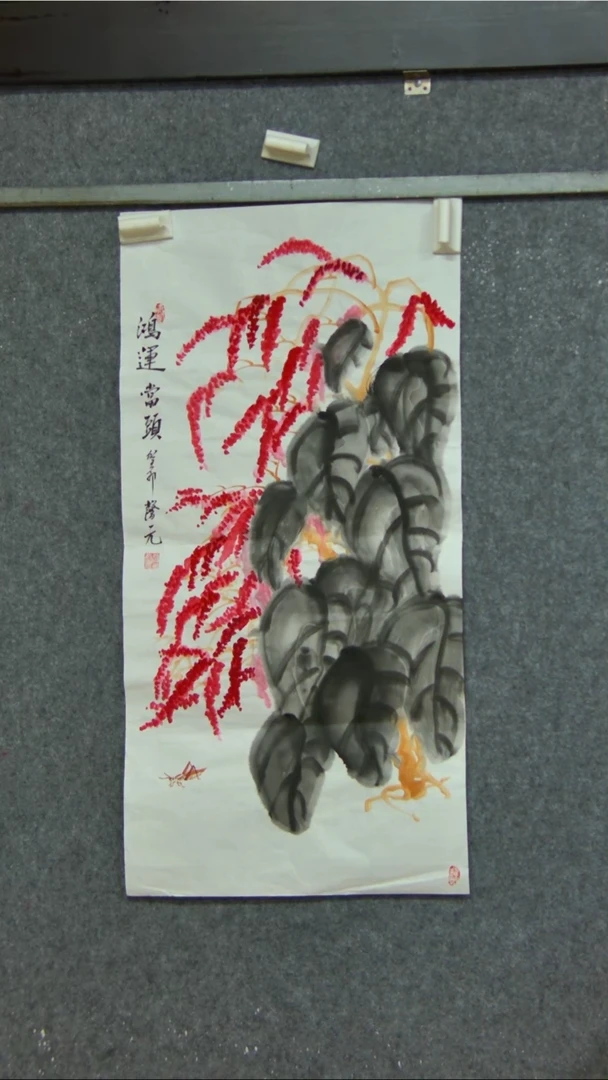 鴻運當頭 癸卯 啓元